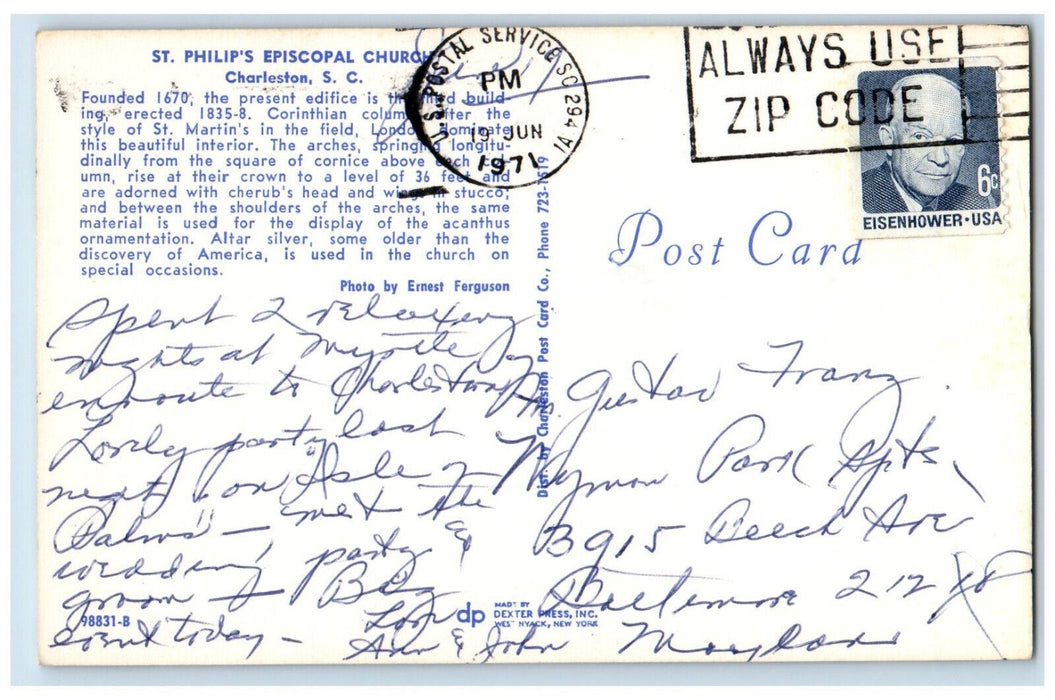 ST. PHILIP'S EPISCOPAL CHURCH
Charleston, S. C.
Founded 1670, the present edifice is the third build-
ing, erected 1835-8. Corinthian columns after the
style of St. Martin's in the field, London dominate
this beautiful interior. The arches, springing longitu-
dinally from the square of cornice above each col-
umn, rise at their crown to a level of 36 feet and
are adorned with cherub's head and wings in stucco;
and between the shoulders of the arches, the same
material is used for the display of the acanthus
ornamentation. Altar silver, some older than the
discovery of America, is used in the church on
special occasions.
Photo by Ernest Ferguson
Spent 2 relaxing
nights at Myrtle
enroute to Charleston
Lovely party last
night on "Isle of
Palms" — met the
wedding party &
groom — Big
event today —
Love
Ann & John
98831-B
dp
MADE BY
DEXTER PRESS, INC.
WEST NYACK, NEW YORK
Dist. by Charleston Post Card Co., Phone 723-1519
U.S. POSTAL SERVICE SC 294
PM
19 JUN
1971
ALWAYS USE
ZIP CODE
6c
EISENHOWER·USA
Post Card
Gustav Franz
Wyman Park Apts.
3915 Beech Ave
Baltimore 21218
Maryland